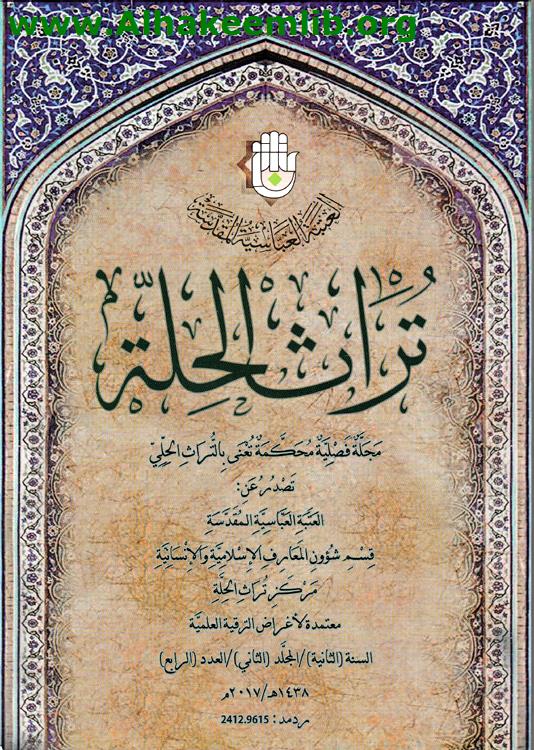 www.Alhakeemlib.org
العتبة العباسية المقدسة
تُرَاثُ الحِلّة
مَجَلَّةٌ فَصْلِيَّةٌ مُحَكَّمَةٌ تُعْنَى بِالتُّرَاثِ الحِلِّيِّ
تَصْدُرُ عَنِ:
العَتَبَةِ العَبَّاسِيَّةِ المُقَدَّسَةِ
قِسْمِ شُؤُونِ المَعَارِفِ الإِسْلَامِيَّةِ وَالإِنْسَانِيَّةِ
مَرْكَزِ تُرَاثِ الحِلَّةِ
معتمدة لأغراض الترقية العلميّة
السنة (الثانية)/المجلّد (الثاني)/العدد (الرابع)
١٤٣٨هـ/٢٠١٧م
ردمد: 2412.9615